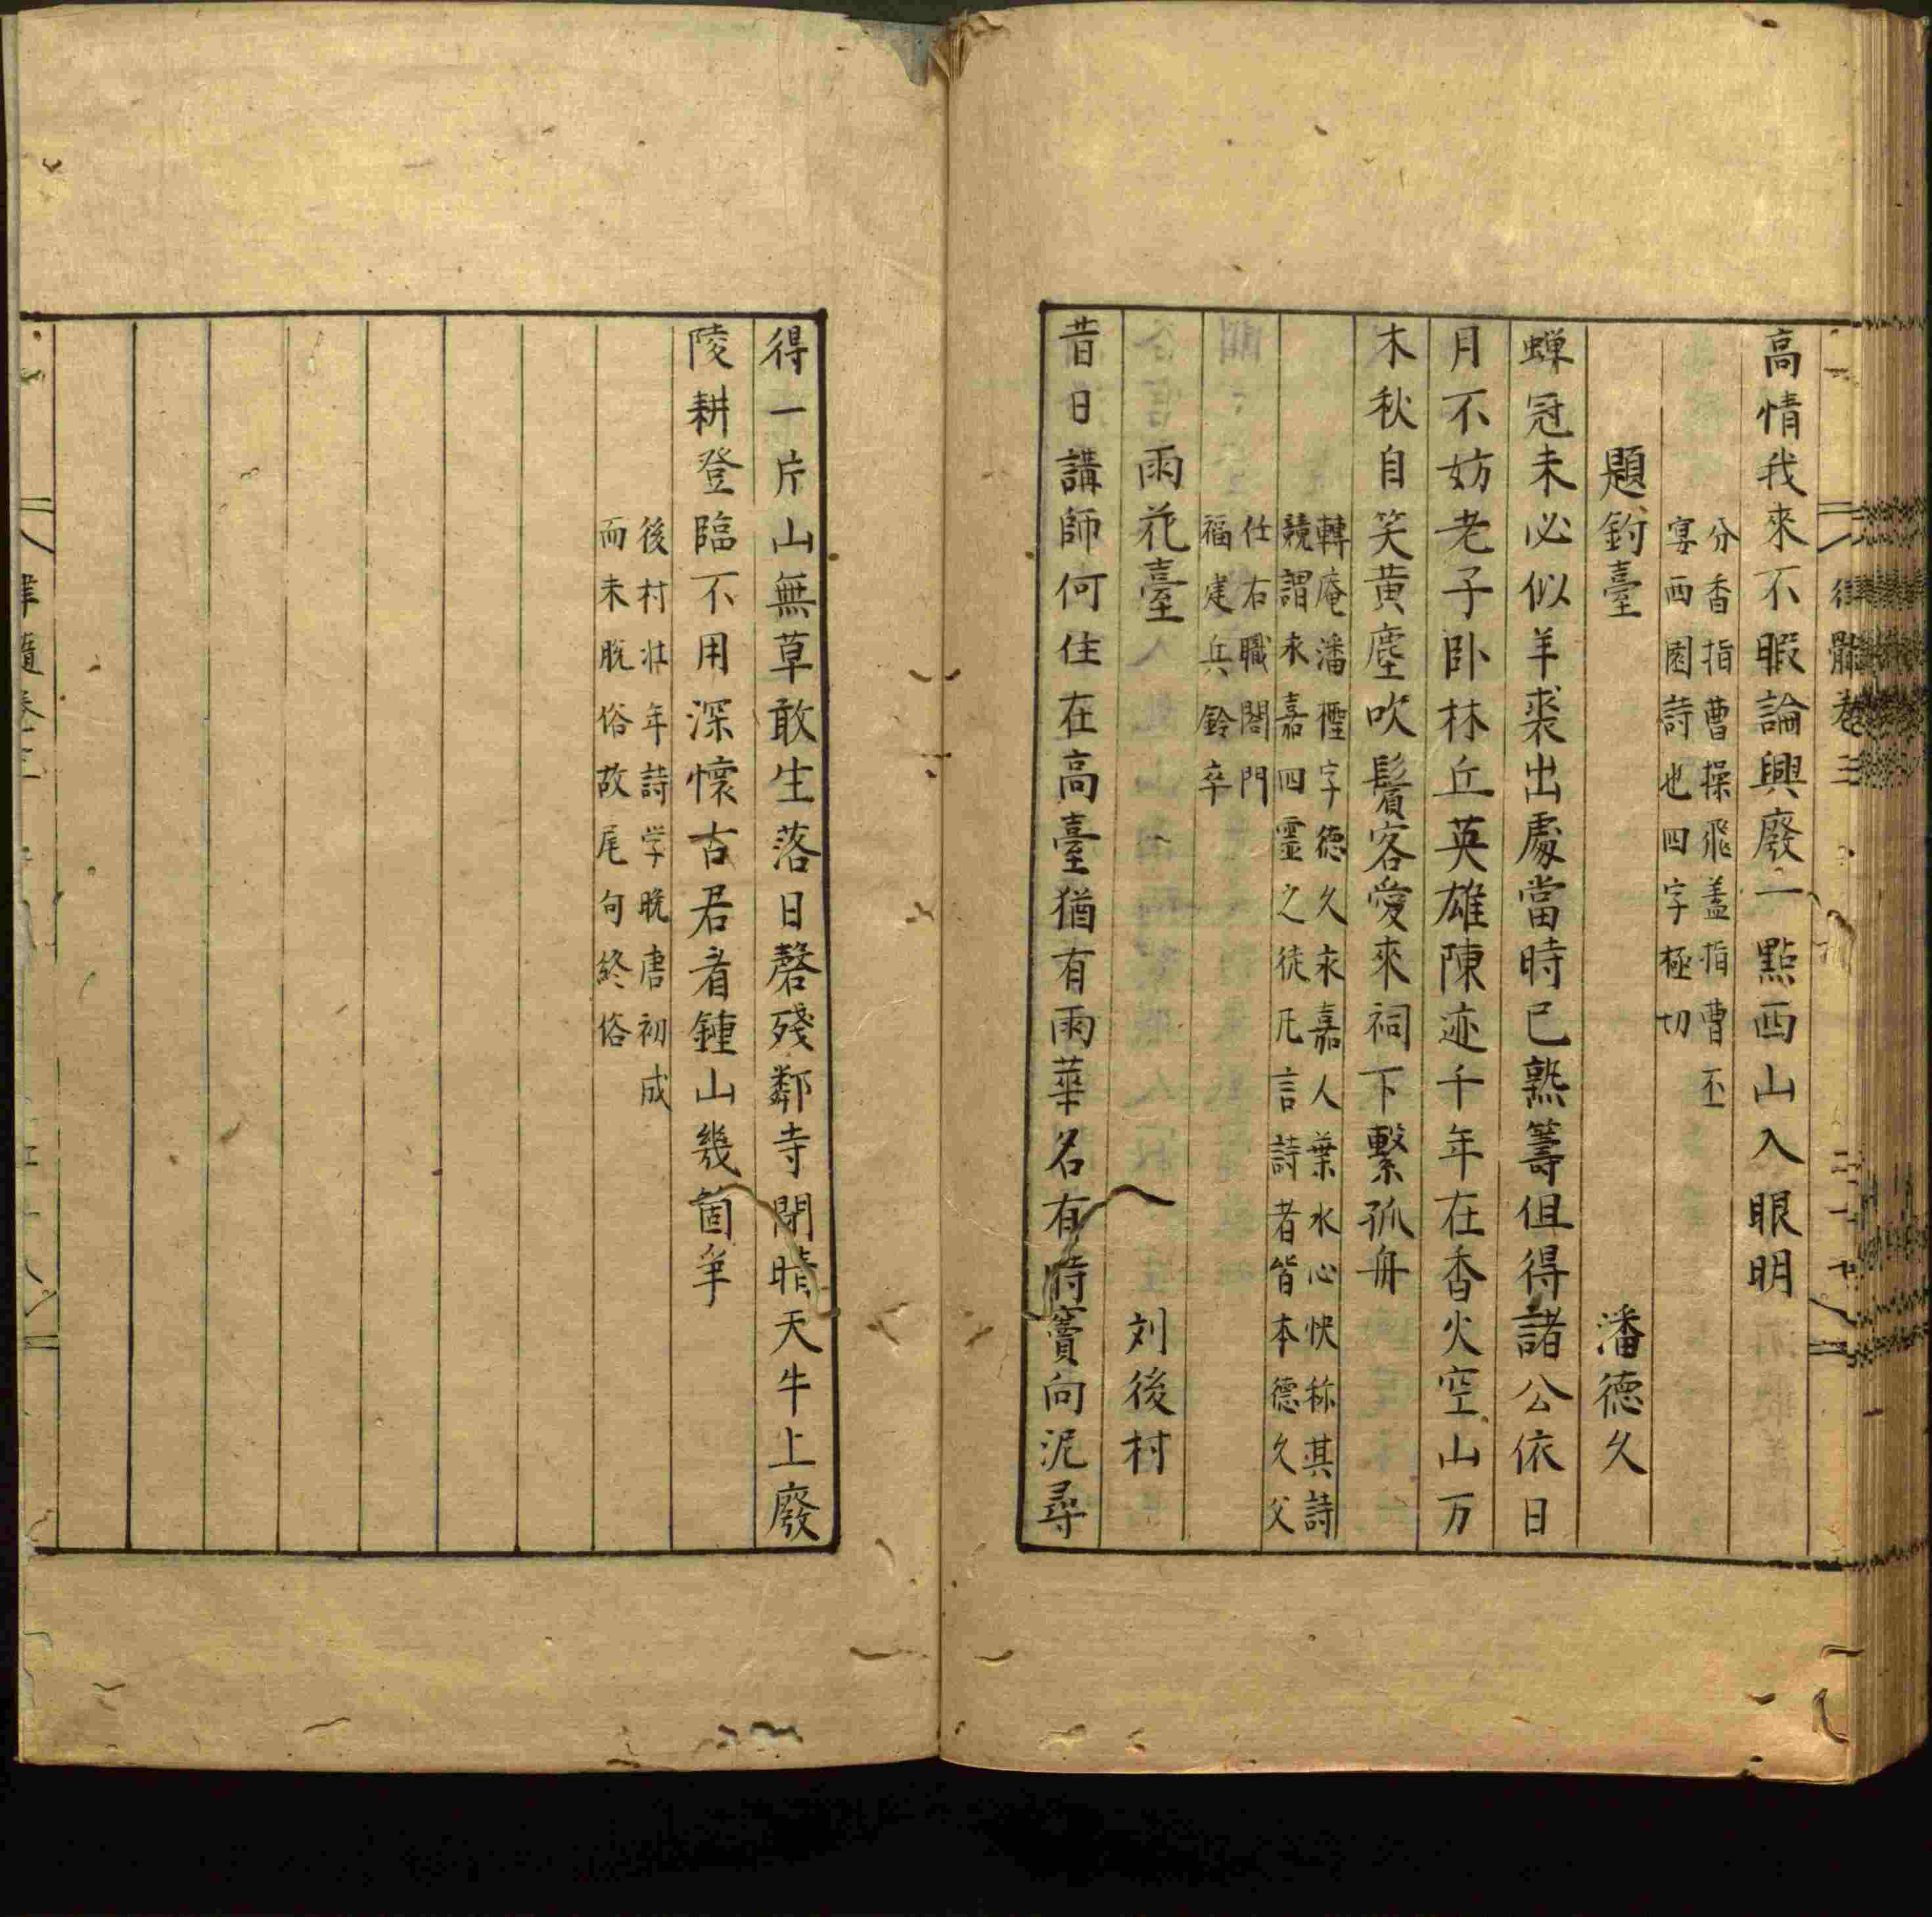 高情我來不暇論興廢一點西山入眼明
分香指曹操飛盖指曹丕
宴西園詩也四字極切
題釣臺
潘德久
蝉冠未必似羊裘出處當時已熟籌但得諸公依日
月不妨老子卧林丘英雄陳迹千年在香火空山万
木秋自笑黄塵吹鬢客愛來祠下繫孤舟
轉庵潘檉字德久永嘉人葉水心快称其詩
競謂永嘉四霊之徒凡言詩者皆本德久父
任右職閤門
福建兵鈐卒
雨花臺
刘後村
昔日講師何住在高臺猶有雨華名有時寶向泥尋
得一片山無草敢生落日磬殘鄰寺閉晴天牛上廢
陵耕登臨不用深懷古君看鍾山幾箇争
後村壮年詩学晚唐初成
而未脱俗故尾句終俗